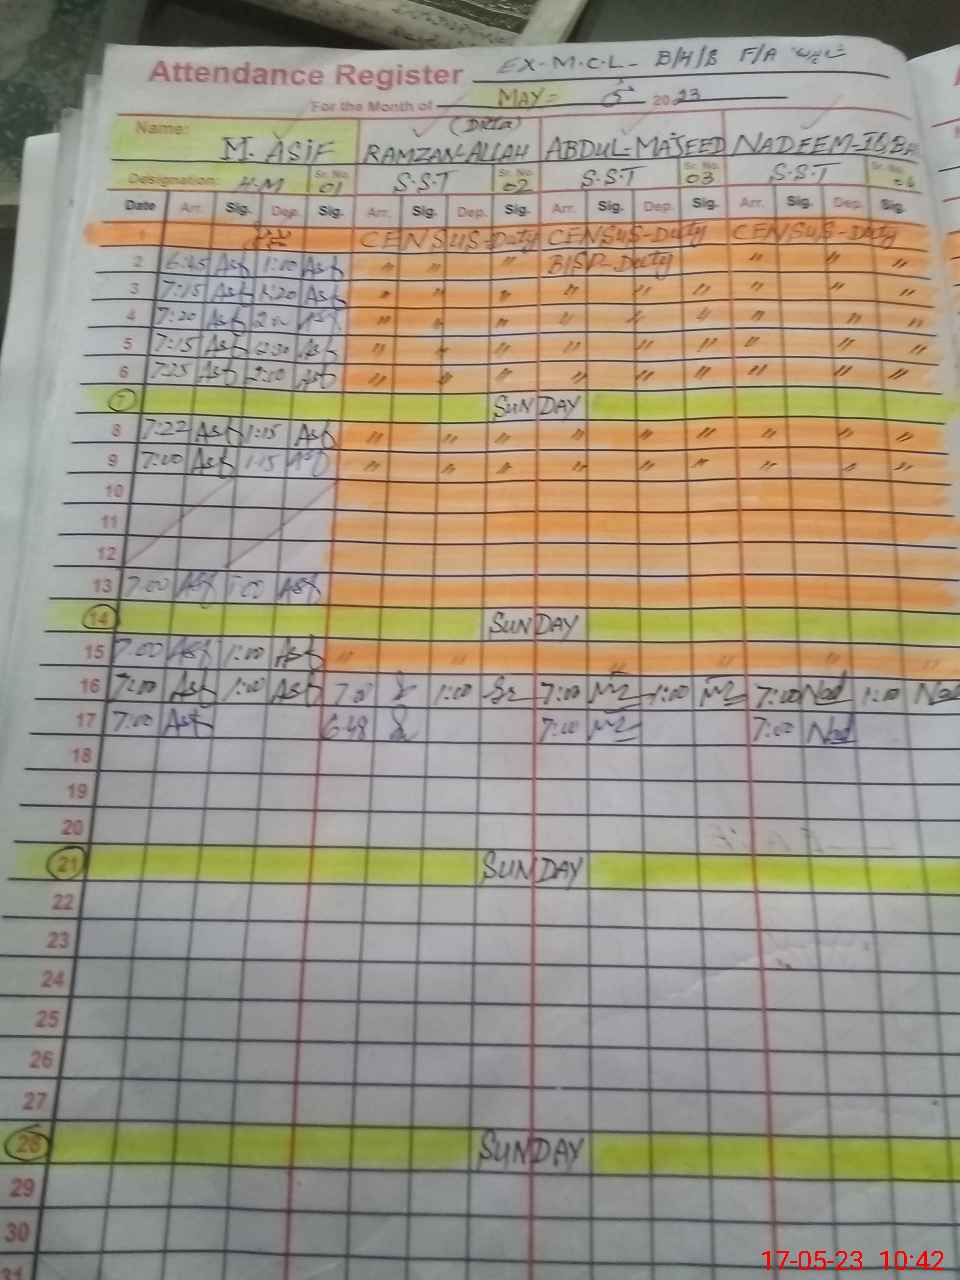 Attendance Register EX-M.C.L- B/H/B F/A
For the Month of MAY= 5 2023
Name: M. ASIF RAMZAN-ALLAH (Ditta) ABDUL-MAJEED NADEEM-IQBAL
Designation: H.M Sr. No. 01 S.S.T Sr. No. 02 S.S.T Sr. No. 03 S.S.T Sr. No. 04
Date Arr. Sig. Dep. Sig. Arr. Sig. Dep. Sig. Arr. Sig. Dep. Sig. Arr. Sig. Dep. Sig.
1 CENSUS-Duty CENSUS-Duty CENSUS-Duty
2 6:45 Asf 1:00 Asf " " " BISP-Duty " " "
3 7:15 Asf 1:20 Asf " " " " " " " " "
4 7:20 Asf Asf " " " " " " " " "
5 7:15 Asf 12:30 Asf " " " " " " " " "
6 7:25 Asf 2:10 Asf " " " " " " " " "
7 SUNDAY
8 7:22 Asf 1:15 Asf " " " " " " " " "
9 7:00 Asf 1:15 Asf " " " " " " " " "
10
11
12
13 7:00 Asf 1:00 Asf
14 SUNDAY
15 7:00 Asf 1:00 Asf " " " " " "
16 7:00 Asf 1:00 Asf 7:00 1:00 7:00 1:00 7:00 Nad 1:00 Nad
17 7:00 Asf 6:48 7:00 7:00 Nad
18
19
20
21 SUNDAY
22
23
24
25
26
27
28 SUNDAY
29
30
31
17-05-23 10:42